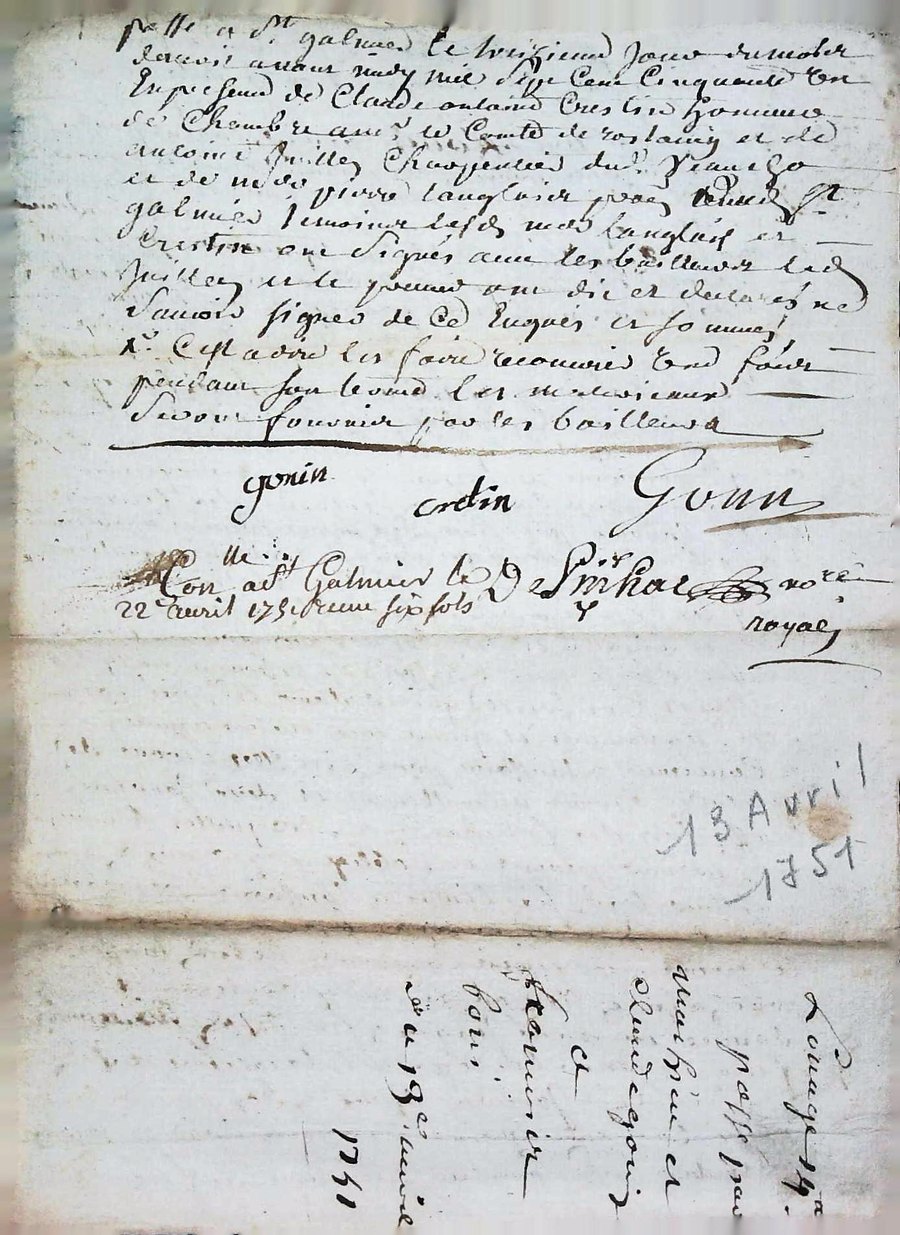 passé a St galmier le treizieme jour du mois
davril avant midy mil sept cent cinquante un
En presence de Claude antoine Crestin homme
de Chambre a mr le Comte de rostaing et de
antoine Juillen Charpentier dud.
et de me pierre langlois
galmier temoins lesd mes langlois et
Crestin ont signés avec les bailleurs led
Juillen et le preneur ont dit et declarés ne
savoir signer de ce Enquis et sommés
Cest a dire les faire
pendant son les materiaux
seront fournis par les bailleurs
gonin
cretin
Gonin
Con. a St Galmier le
22e avril 1751 six sols
royal
13 Avril
1751
Louage
passé par
mathieu et
claude gonin
a
françois
bons
du 13e avril
1751